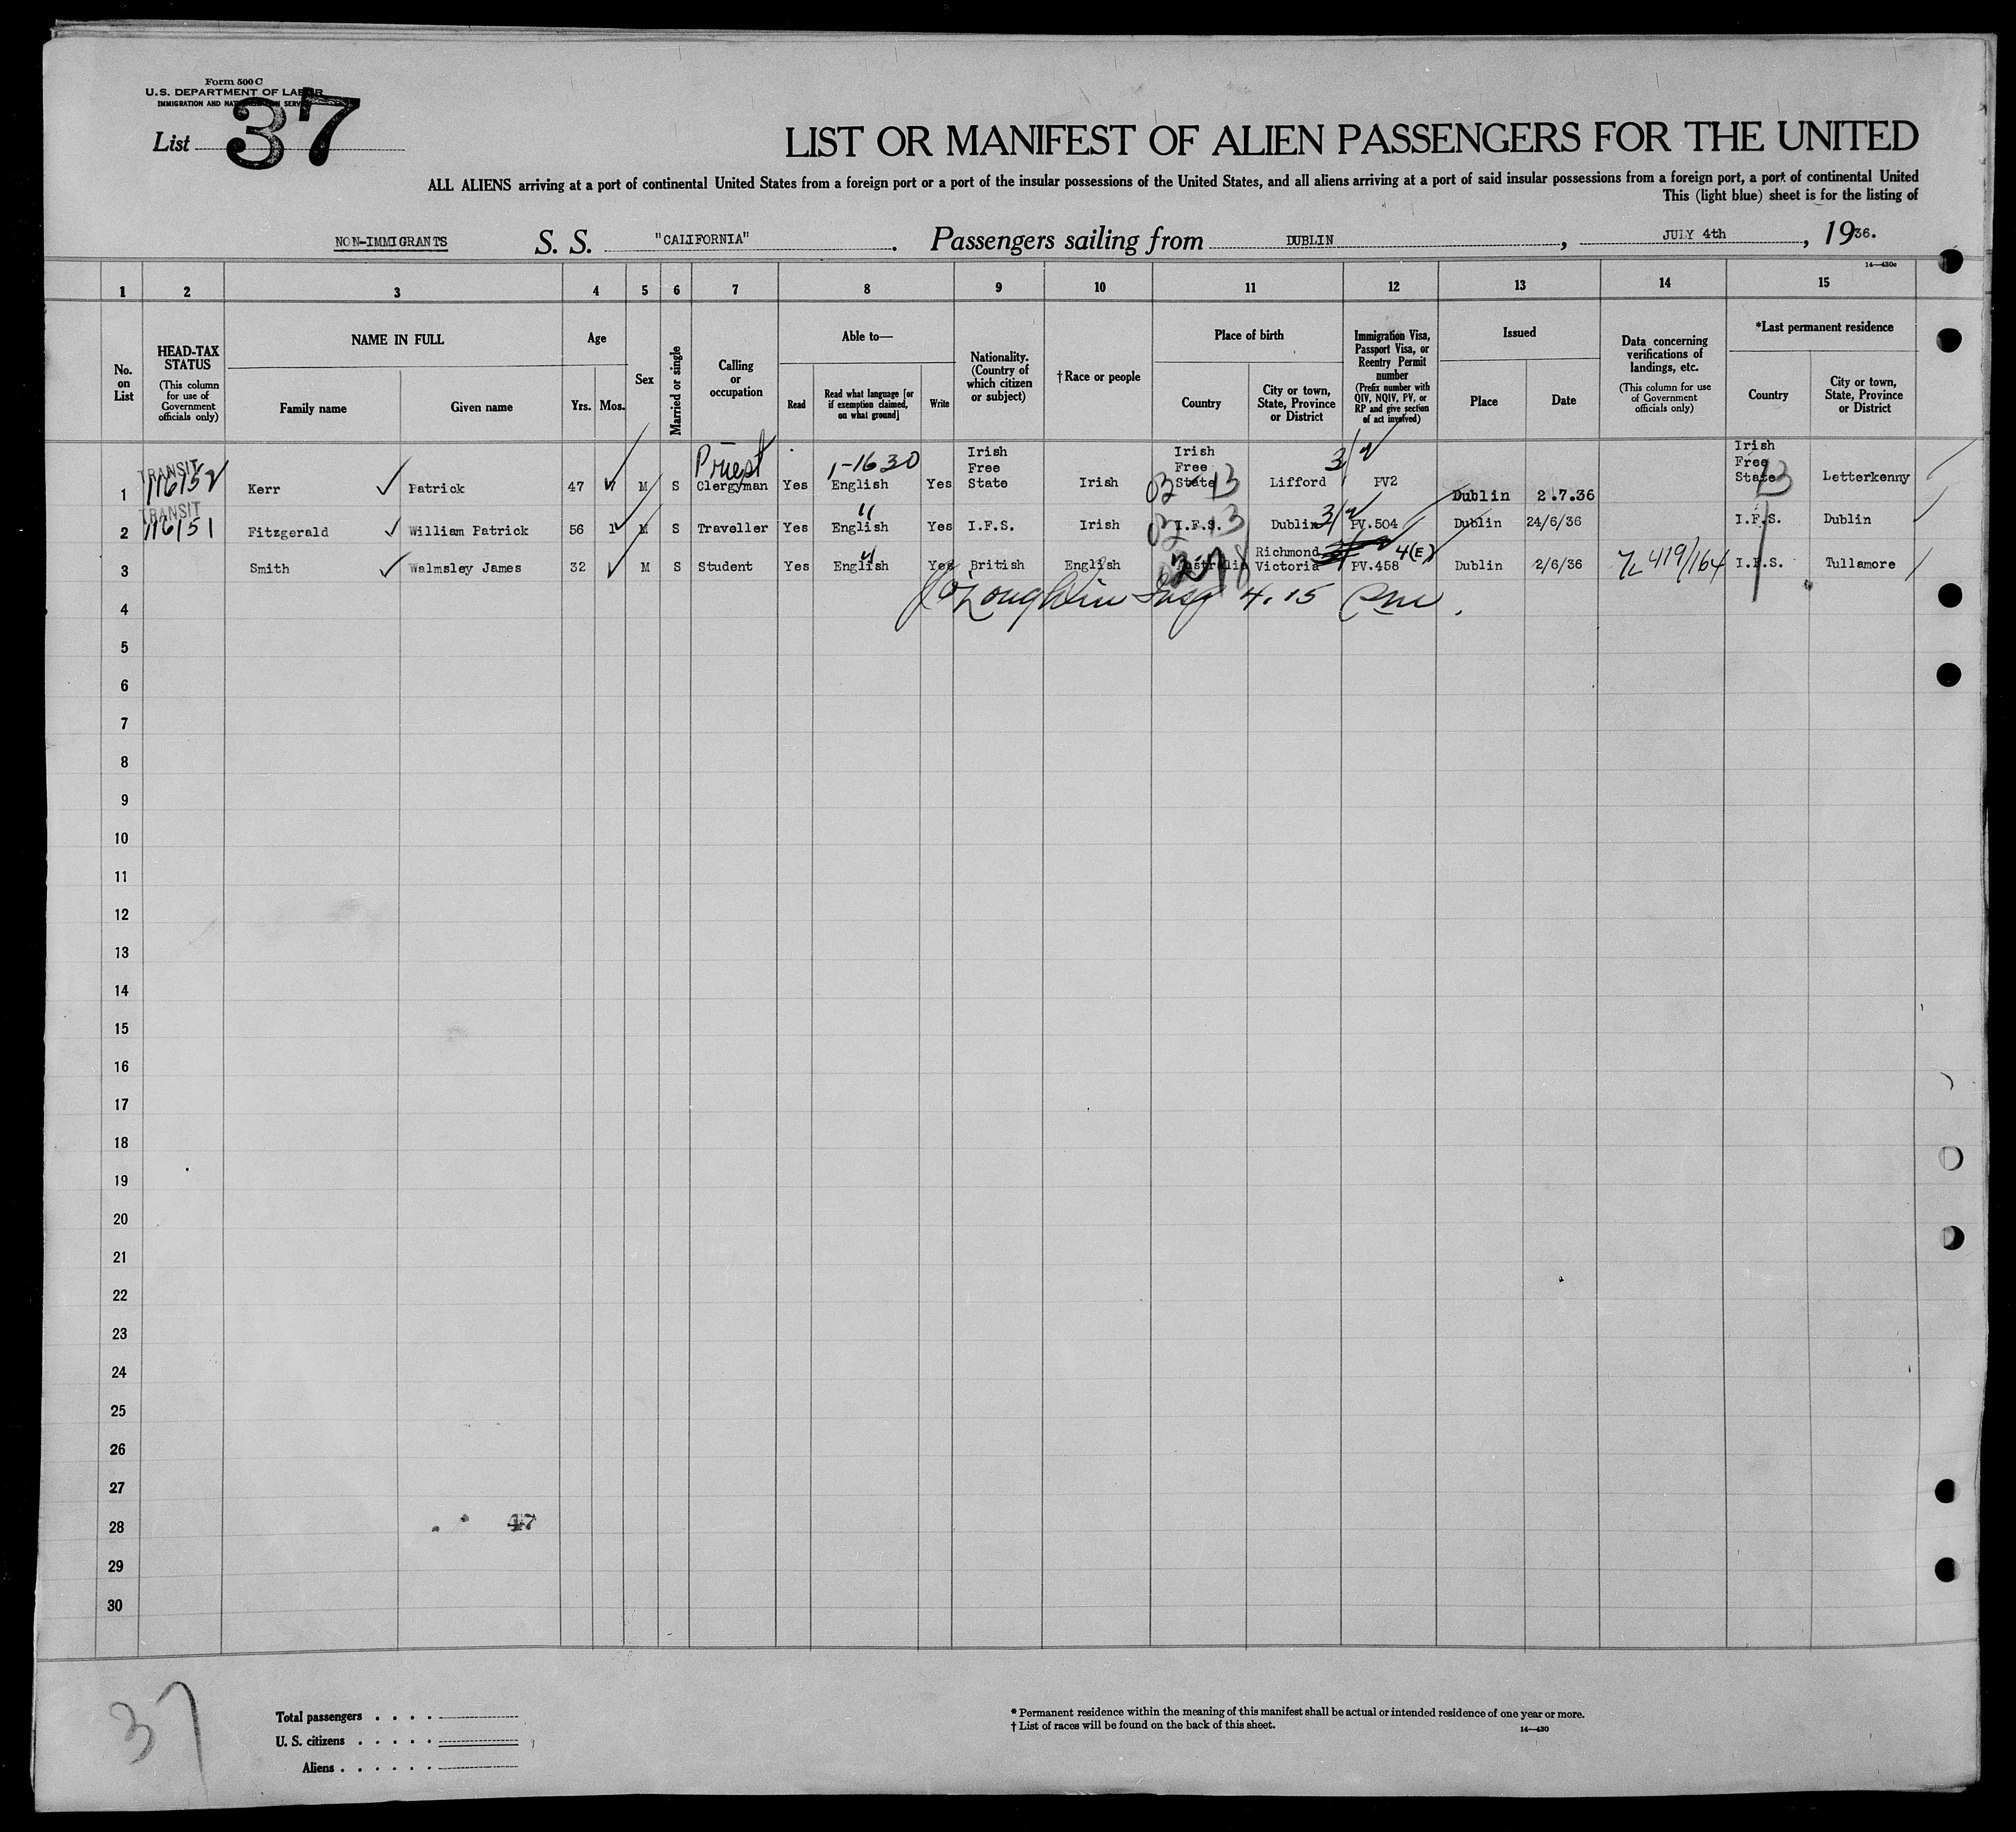 Form 500 C
U.S. DEPARTMENT OF LABOR
IMMIGRATION AND NATURALIZATION SERVICE
List 37
LIST OR MANIFEST OF ALIEN PASSENGERS FOR THE UNITED
ALL ALIENS arriving at a port of continental United States from a foreign port or a port of the insular possessions of the United States, and all aliens arriving at a port of said insular possessions from a foreign port, a port of continental United
This (light blue) sheet is for the listing of
NON-IMMIGRANTS S. S. "CALIFORNIA". Passengers sailing from DUBLIN, JULY 4th, 1936.
14—430c
1 2 3 4 5 6 7 8 9 10 11 12 13 14 15
No. on List
HEAD-TAX STATUS
(This column for use of Government officials only)
NAME IN FULL
Family name
Given name
Age
Yrs.
Mos.
Sex
Married or single
Calling or occupation
Able to—
Read
Read what language [or if exemption claimed, on what ground]
Write
Nationality. (Country of which citizen or subject)
†Race or people
Place of birth
Country
City or town, State, Province or District
Immigration Visa, Passport Visa, or Reentry Permit number
(Prefix number with QIV, NQIV, PV, or RP and give section of act involved)
Issued
Place
Date
Data concerning verifications of landings, etc.
(This column for use of Government officials only)
*Last permanent residence
Country
City or town, State, Province or District
Priest 1-1630 3/2
1 TRANSIT 116152 Kerr Patrick 47 M S Clergyman Yes English Yes Irish Free State Irish Irish Free State 13 Lifford PV2 Dublin 2.7.36 Irish Free State Letterkenny
2 TRANSIT 116151 Fitzgerald William Patrick 56 1 M S Traveller Yes English Yes I.F.S. Irish I.F.S. 13 Dublin 3/2 PV.504 Dublin 24/6/36 I.F.S. Dublin
3 Smith Walmsley James 32 M S Student Yes English Yes British English Australia Richmond Victoria 4(E) PV.458 Dublin 2/6/36 419/164 I.F.S. Tullamore
4 O'Loughlin Insp 4.15 Pm.
5
6
7
8
9
10
11
12
13
14
15
16
17
18
19
20
21
22
23
24
25
26
27
28 47
29
30
37
Total passengers . . . .
U. S. citizens . . . . .
Aliens . . . . . .
* Permanent residence within the meaning of this manifest shall be actual or intended residence of one year or more.
† List of races will be found on the back of this sheet.
14—430